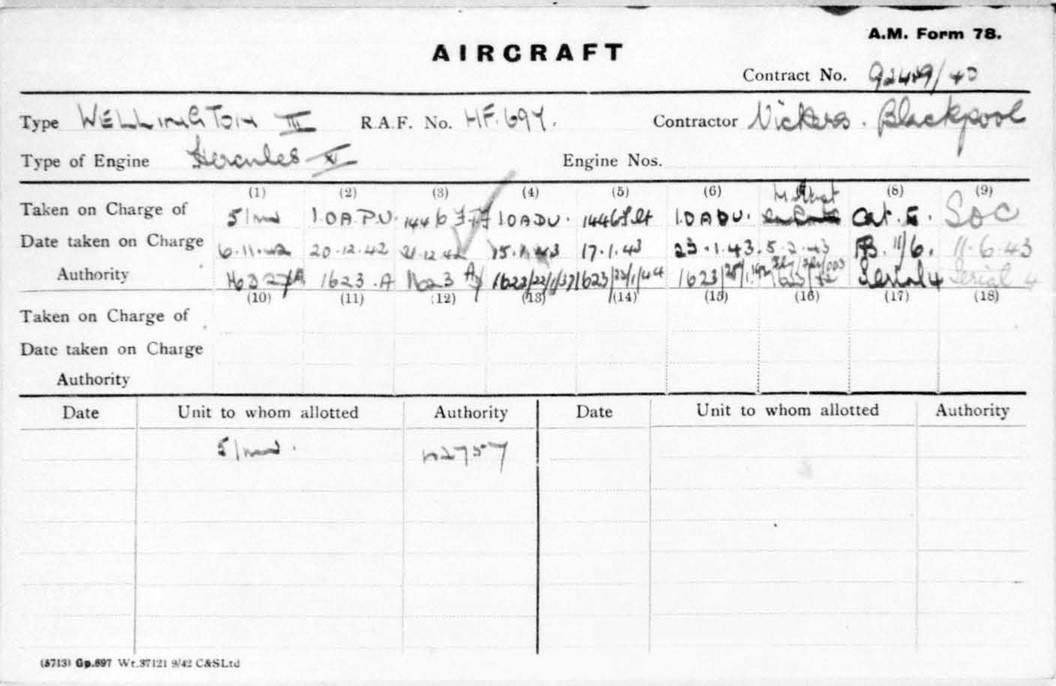 A.M. Form 78.
AIRCRAFT
Contract No. 92439/40
Type WELLINGTON III R.A.F. No. HF.697. Contractor Vickers. Blackpool
Type of Engine Hercules XI Engine Nos.
(1) (2) (3) (4) (5) (6) (8) (9)
Taken on Charge of 51mu 1.OA.P.U. 1446 1.OADU. 1446 1.OADU. Cat. E. SOC
Date taken on Charge 6.11.42 20.12.42 21.12.42 15.1.43 17.1.43 23.1.43. 5.2.43 11/6. 11.6.43
Authority 1623.A 1623 A Serial 4 Serial 4
(10) (11) (12) (13) (14) (15) (16) (17) (18)
Taken on Charge of
Date taken on Charge
Authority
Date Unit to whom allotted Authority Date Unit to whom allotted Authority
51mu. n2757
(5713) Gp.697 Wt.37121 9/42 C&SLtd